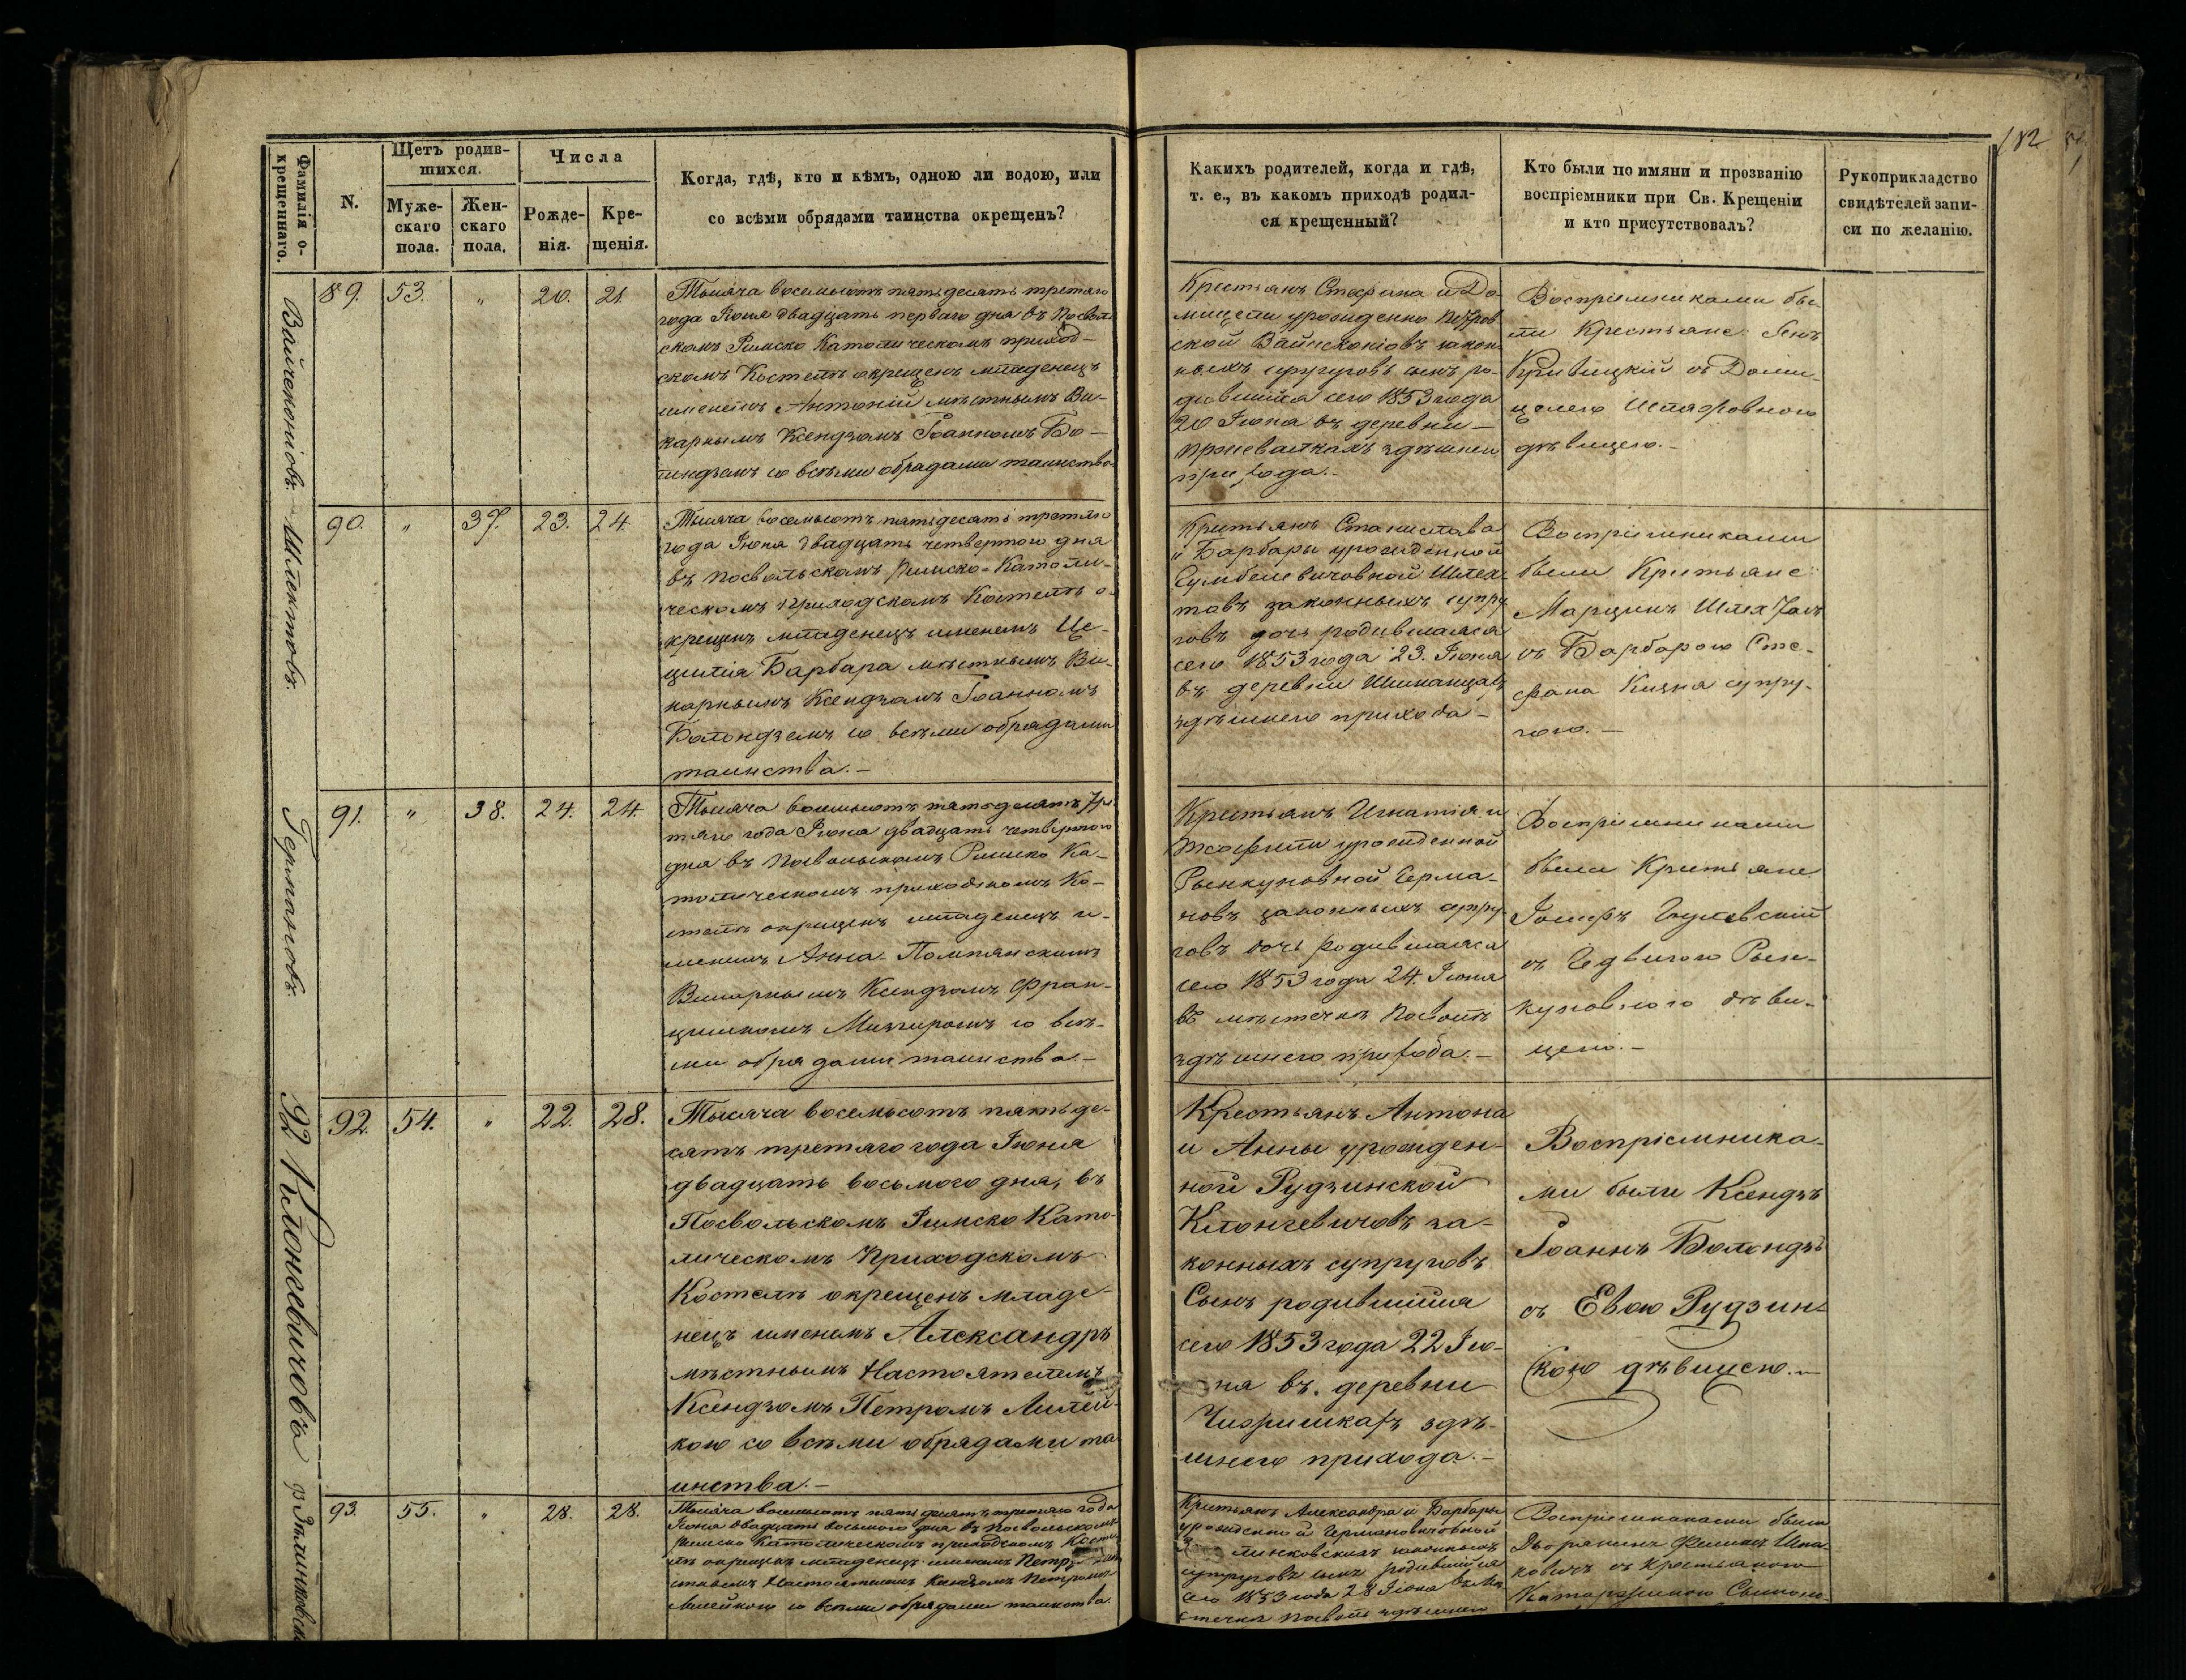 182
Фамилія о-
крещеннаго.
N.
Щетъ родив-
шихся.
Муже-
скаго
пола.
Жен-
скаго
пола.
Числа
Рожде-
нія.
Кре-
щенія.
Когда, гдѣ, кто и кѣмъ, одною ли водою, или
со всѣми обрядами таинства окрещенъ?
Какихъ родителей, когда и гдѣ,
т. е., въ какомъ приходѣ родил-
ся крещенный?
Кто были по имяни и прозванію
воспріемники при Св. Крещеніи
и кто присутствовалъ?
Рукоприкладство
свидѣтелей запи-
си по желанію.
89. 53. " 20. 21.
Тысяча восемьсотъ пятьдесятъ третяго
года Іюня двадцать перваго дня въ Посволь
скомъ Римско Католическомъ приход-
скомъ Костелѣ окрещенъ младенецъ
именемъ Антоній мѣстнымъ Ви-
карнымъ Ксендзомъ Іоанномъ Бо-
лондземъ со всѣми обрядами таинства
Крестьянъ Стефана и До-
мицели урожденно Петров
ской закон-
ныхъ супруговъ сынъ ро-
дившійся сего 1853 года
20 Іюня въ деревни
здѣшнего
прихода.-
Воспріемниками бы-
ли Крестьяне:
Кривицкій съ Доми-
целею
дѣвицею.-
90. " 37. 23. 24.
Шлектовъ.
Тысяча восемьсотъ пятьдесятъ третяго
года Іюня двадцать четвертого дня
въ Посвольскомъ Римско-Католи-
ческомъ приходскомъ Костелѣ о-
крещенъ младенецъ именемъ Це-
цилія Барбара мѣстнымъ Ви-
карнымъ Ксендзомъ Іоанномъ
Болондземъ со всѣми обрядами
таинства.-
Крестьянъ Станислава
и Барбары урожденной
Шлек
товъ законныхъ супру
говъ дочь родившаяся
сего 1853 года 23. Іюня
въ деревни
здѣшнего прихода-
Воспріемниками
были Крестьяне:
Марцинъ
съ Барбарою Сте-
фана супру-
гою.-
91. " 38. 24. 24.
Германовъ.
Тысяча восемьсотъ пятьдесятъ тре
тяго года Іюня двадцать четвертого
дня въ Посвольскомъ Римско Ка-
толическомъ приходскомъ Ко-
стелѣ окрещенъ младенецъ и-
менемъ Анна Помпянскимъ
Викарнымъ Ксендзомъ Фран-
цишкомъ со всѣ-
ми обрядами таинства.-
Крестьянъ Игнатія и
урожденной
Рынкуновной Герма-
новъ законныхъ супру-
говъ дочь родившаяся
сего 1853 года 24. Іюня
въ мѣстечкѣ Посволѣ
здѣшнего прихода.-
Воспріемниками
были Крестьяне
Іосифъ
съ Рын-
куновною дѣви-
цею.-
92. 54. " 22. 28.
92 Клонгевичовъ
Тысяча восемьсотъ пятьде-
сятъ третяго года Іюня
двадцать восьмого дня, въ
Посвольскомъ Римско Като-
лическомъ Приходскомъ
Костелѣ окрещенъ младе-
нецъ именемъ Александръ
мѣстнымъ Настоятелемъ
Ксендзомъ Петромъ Лилей-
кою со всѣми обрядами та
инства.-
Крестьянъ Антона
и Анны урожден-
ной Рудзинской
Клонгевичовъ за-
конныхъ супруговъ
Сынъ родившійся
сего 1853 года 22 Ію-
ня въ. деревни
здѣ-
шнего прихода.-
Воспріемника-
ми были Ксендзъ
Іоаннъ Болондзь
съ Евою Рудзин-
скою дѣвицею.-
93. 55. " 28. 28.
Тысяча восемьсотъ пятьдесятъ третяго года
Іюня двадцать восьмого дня въ Посвольскомъ
Римско Католическомъ приходскомъ Косте
лѣ окрещенъ младенецъ именемъ Петръ
стнымъ Настоятелемъ Ксендзомъ Петромъ
Лилейкою со всѣми обрядами таинства.
Крестьянъ Александра и Барбары
урожденной Германовичовной
законныхъ
супруговъ сынъ родившійся
сего 1853 года 28 Іюня въ Мѣ
стечкѣ Посволѣ здѣшнего
Воспріемниками были
Дворянинъ
ковичъ съ Крестьянкою